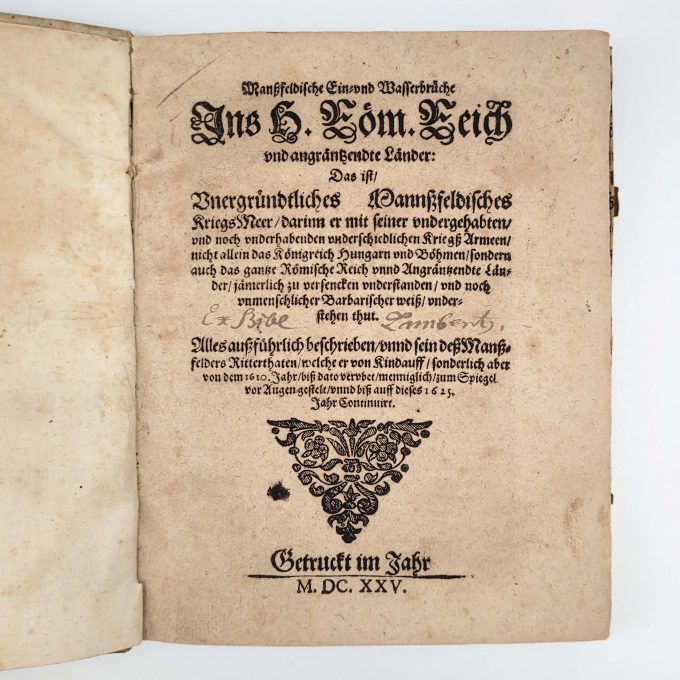 Manßfeldische Ein-vnd Wasserbrüche
Ins H. Röm. Reich
vnd angräntzendte Länder:
Das ist/
Vnergründtliches Mannßfeldisches
KriegsMeer/darinn er mit seiner vndergehabten/
vnd noch vnderhabenden vnderschiedlichen Kriegß Armeen/
nicht allein das Königreich Hungarn vnd Böhmen/sondern
auch das gantze Römische Reich vnnd Angräntzendte Län-
der/jämerlich zu versencken vnderstanden/vnd noch
vnmenschlicher Barbarischer weiß/vnder-
stehen thut.
Ex Bibl Lambert.
Alles außführlich beschrieben/vnnd sein deß Manß-
felders Ritterthaten/welche er von Kindauff/sonderlich aber
von dem 1610. Jahr/biß dato verübet/menniglich/zum Spiegel
vor Augen gestelt/vnnd biß auff dieses 1625.
Jahr Continuirt.
Getruckt im Jahr
M. DC. XXV.